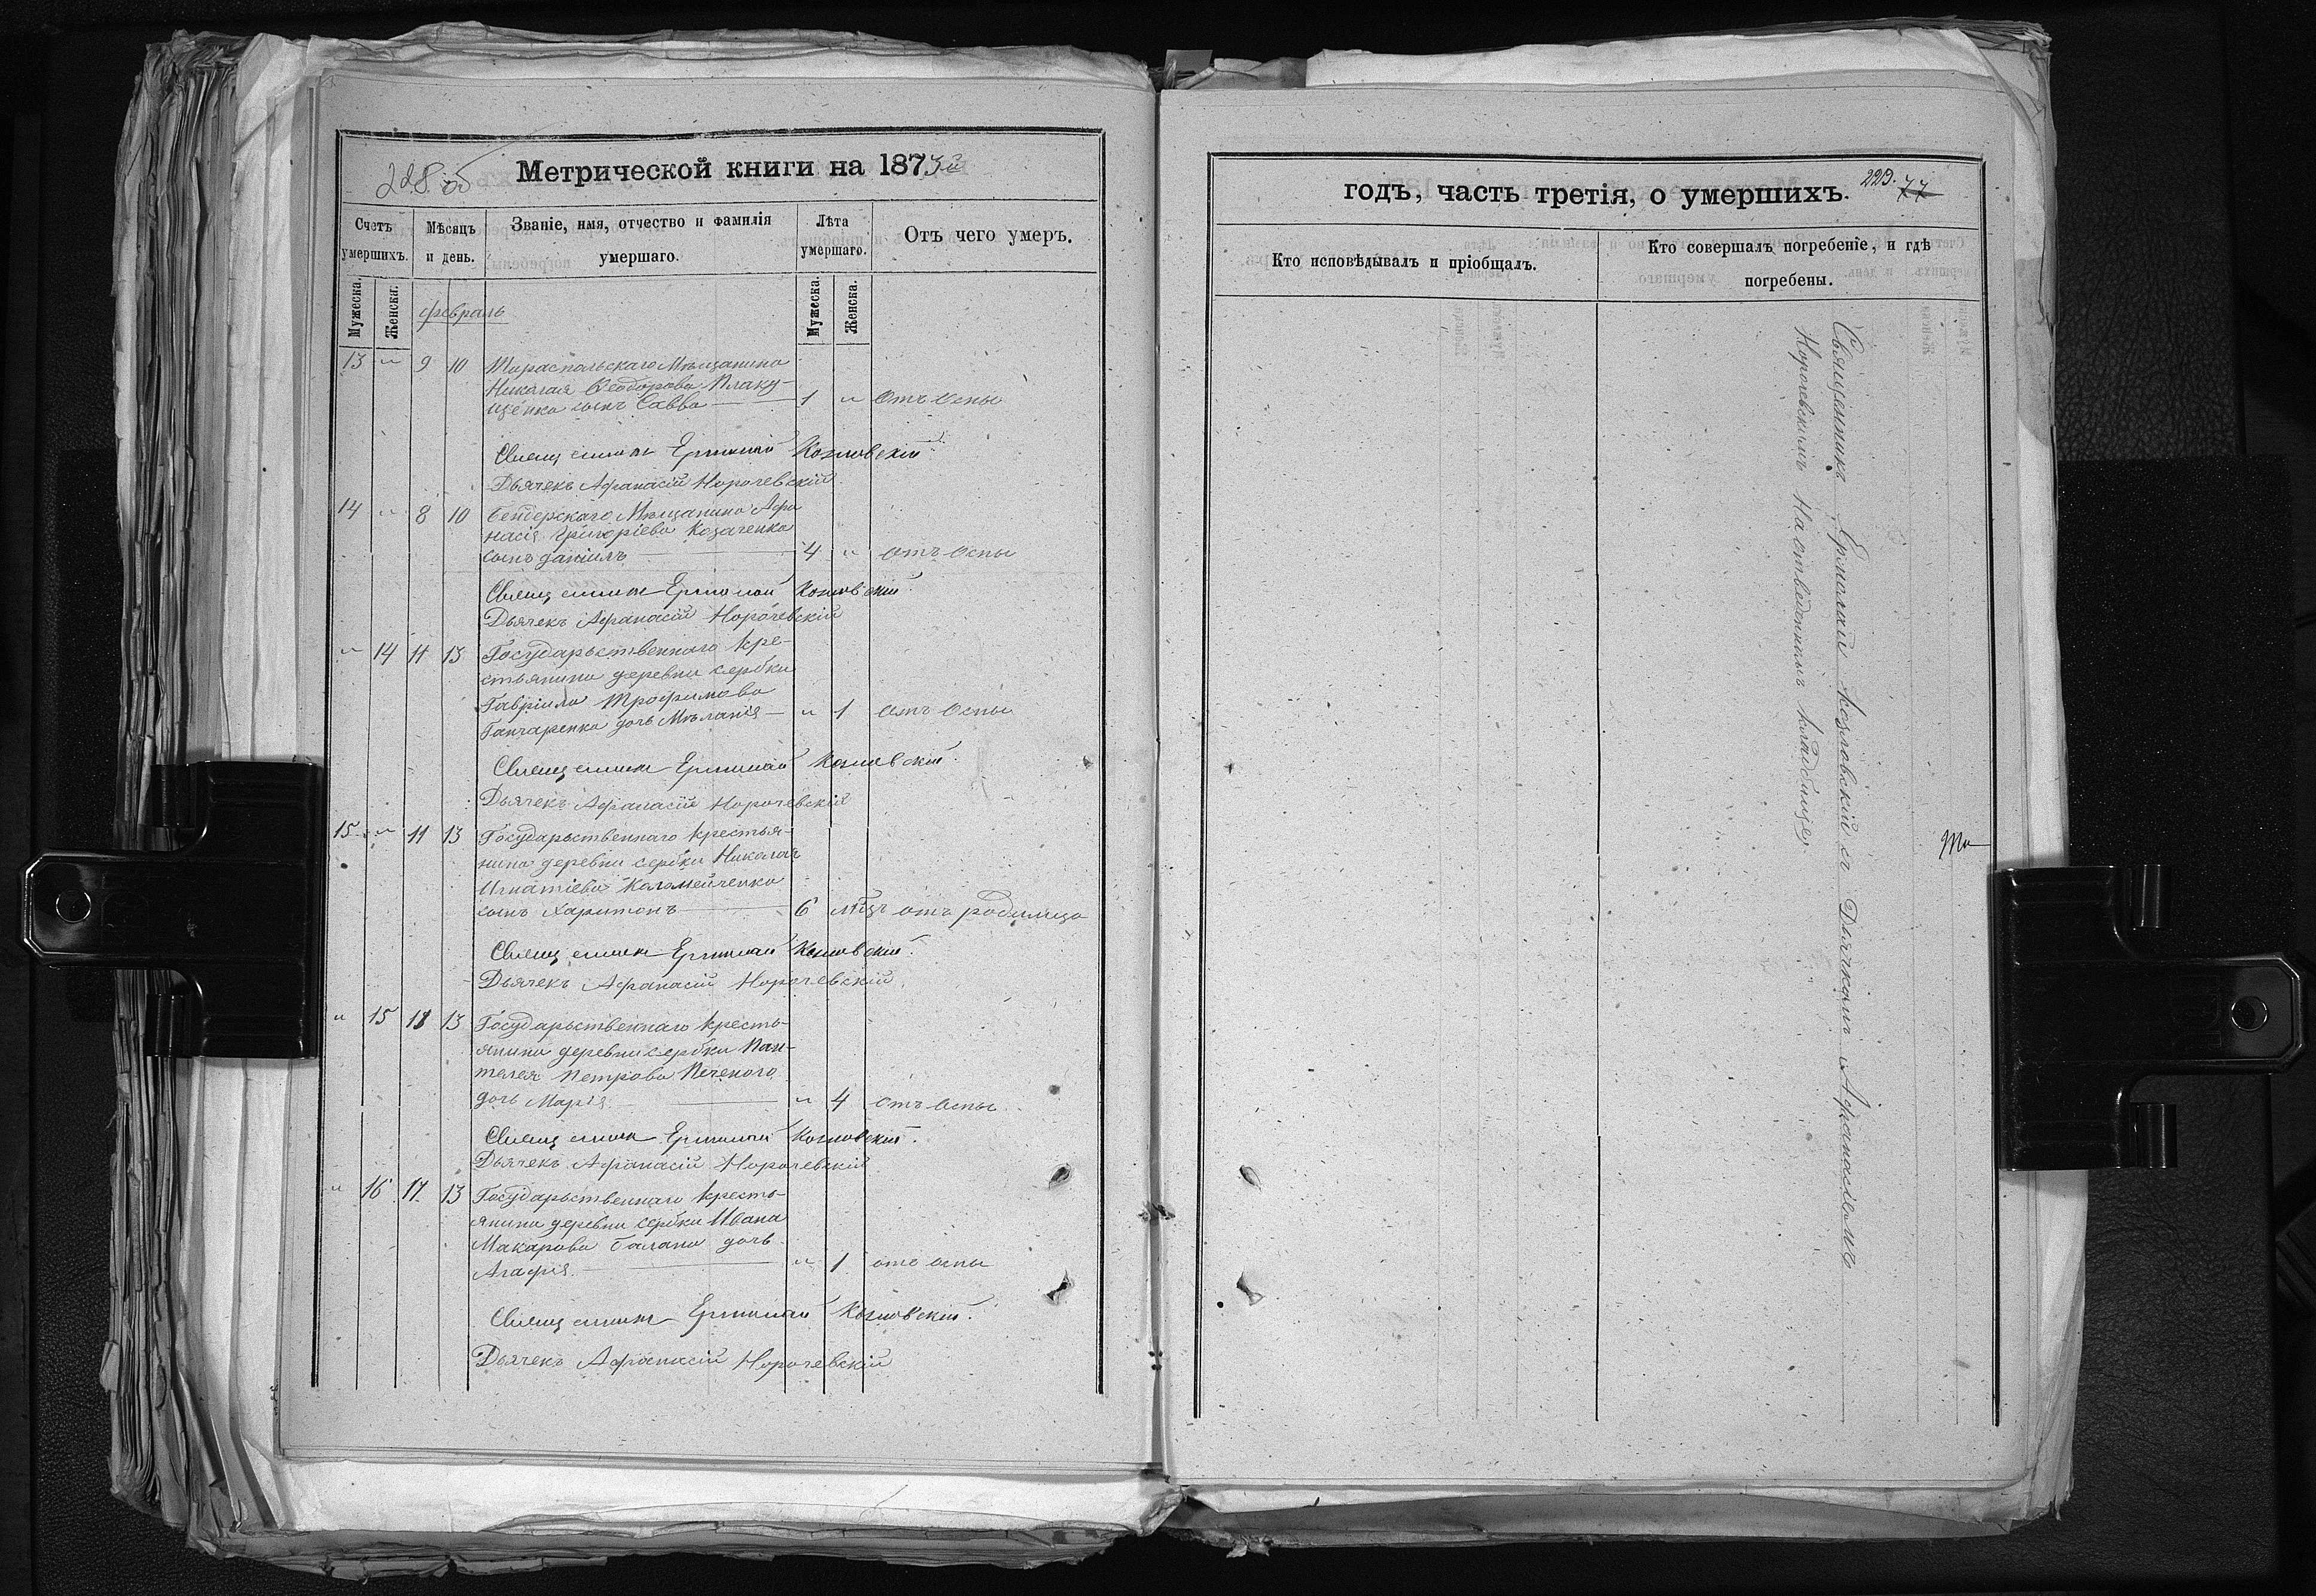 228 об
Метрической книги на 1873й
Счетъ умершихъ.
Мѣсяцъ и день.
Званіе, имя, отчество и фамилія умершаго.
Лѣта умершаго.
Отъ чего умеръ.
Мужеска. Женска.
Мужеска. Женска.
февраль
13 " 9 10 Тираспольскаго Мѣщанина
Николая Ѳеодорова Плаку-
щенка сынъ Савва 1 " Отъ Оспы
Священникъ Ермолай Козловскій.
Дьячекъ Афанасій Норочевскій
14 " 8 10 Бендерскаго Мѣщанина Афа
насія Григоріева Козаченка
сынъ Даніилъ 4 " отъ Оспы
Священникъ Ермолай Козловскій.
Дьячекъ Афанасій Норочевскій
" 14 11 13 Государьственнаго Кре-
стьянина деревни Сербки
Гавріила Трофимова
Ганчаренка дочь Мѣланія " 1 отъ Оспы
Священникъ Ермолай Козловскій.
Дьячекъ Афанасій Норочевскій
15 " 11 13 Государьственнаго Крестья-
нина деревни Сербки Николая
Игнатіева Коломейченка
сынъ Харитонъ 6 мѣц. отъ родимца
Священникъ Ермолай Козловскій.
Дьячекъ Афанасій Норочевскій
" 15 11 13 Государьственнаго Кресть-
янина деревни Сербки Пан-
телея Петрова Печеного
дочь Марія " 4 отъ Оспы
Священникъ Ермолай Козловскій.
Дьячекъ Афанасій Норочевскій
" 16 11 13 Государьственнаго Кресть-
янина деревни Сербки Ивана
Макарова Балана дочь
Агафія " 1 отъ оспы
Священникъ Ермолай Козловскій.
Дьячекъ Афанасій Норочевскій
годъ, часть третія, о умершихъ.
229. 77
Кто исповѣдывалъ и пріобщалъ.
Кто совершалъ погребеніе, и гдѣ погребены.
Священникъ Ермолай Козловскій съ Дьячкомъ Афанасіемъ
Норочевскимъ На отведенномъ кладбище